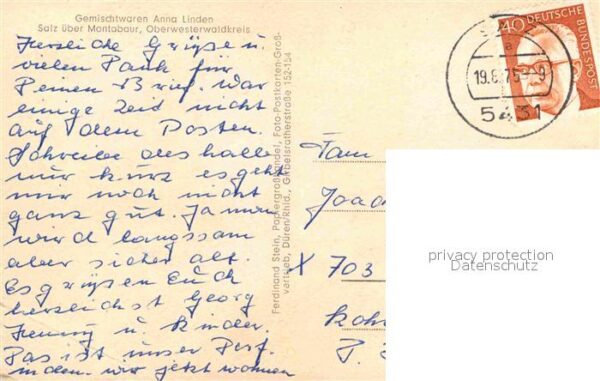 Gemischtwaren Anna Linden
Salz über Montabaur, Oberwesterwaldkreis
Herzliche Grüße u.
vielen Dank für
Deinen Brief. War
einige Zeid nicht
auf dem Posten.
Schreibe des halb
nur kurz es geht
mir noch nicht
ganz gut. Ja man
wird langssam
aber sicher alt.
Es grüßen Euch
herzlichst Georg
Henny u. Kinder.
Das ist unser Dorf
in dem wir jetzt wohnen
Ferdinand Stein, Papiergroßhandel, Foto-Postkarten-Groß-
vertrieb, Düren/Rhld., Girbelsratherstraße 152-154
40 DEUTSCHE BUNDESPOST
a
19.8.75-9
5431
Fam
Joac
X 703
privacy protection
Datenschutz